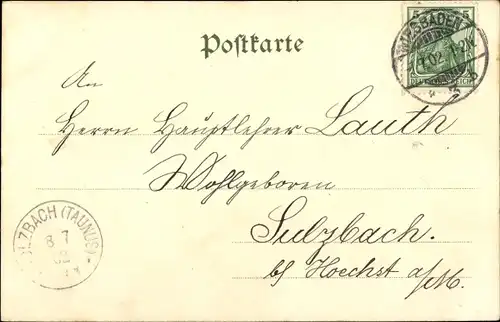 5 5
WIESBADEN
Postkarte
1-2N
7.02
DEUTSCHES REICH
An
Herrn Hauptlehrer Lauth
Wohlgeboren
SULZBACH (TAUNUS)
Sulzbach.
8 7
02
b/ Hoechst a/M.